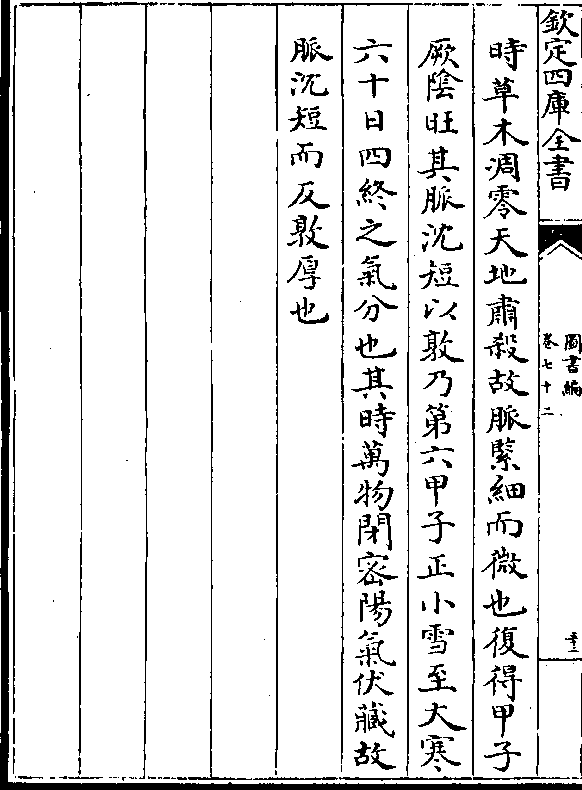 欽定四庫全書
圖書編
卷七十二
時草木凋零天地肅殺故脈緊細而微也復得甲子
厥陰旺其脈沈短以敦乃第六甲子正小雪至大寒
六十日四終之氣分也其時萬物閉密陽氣伏藏故
脈沈短而反敦厚也